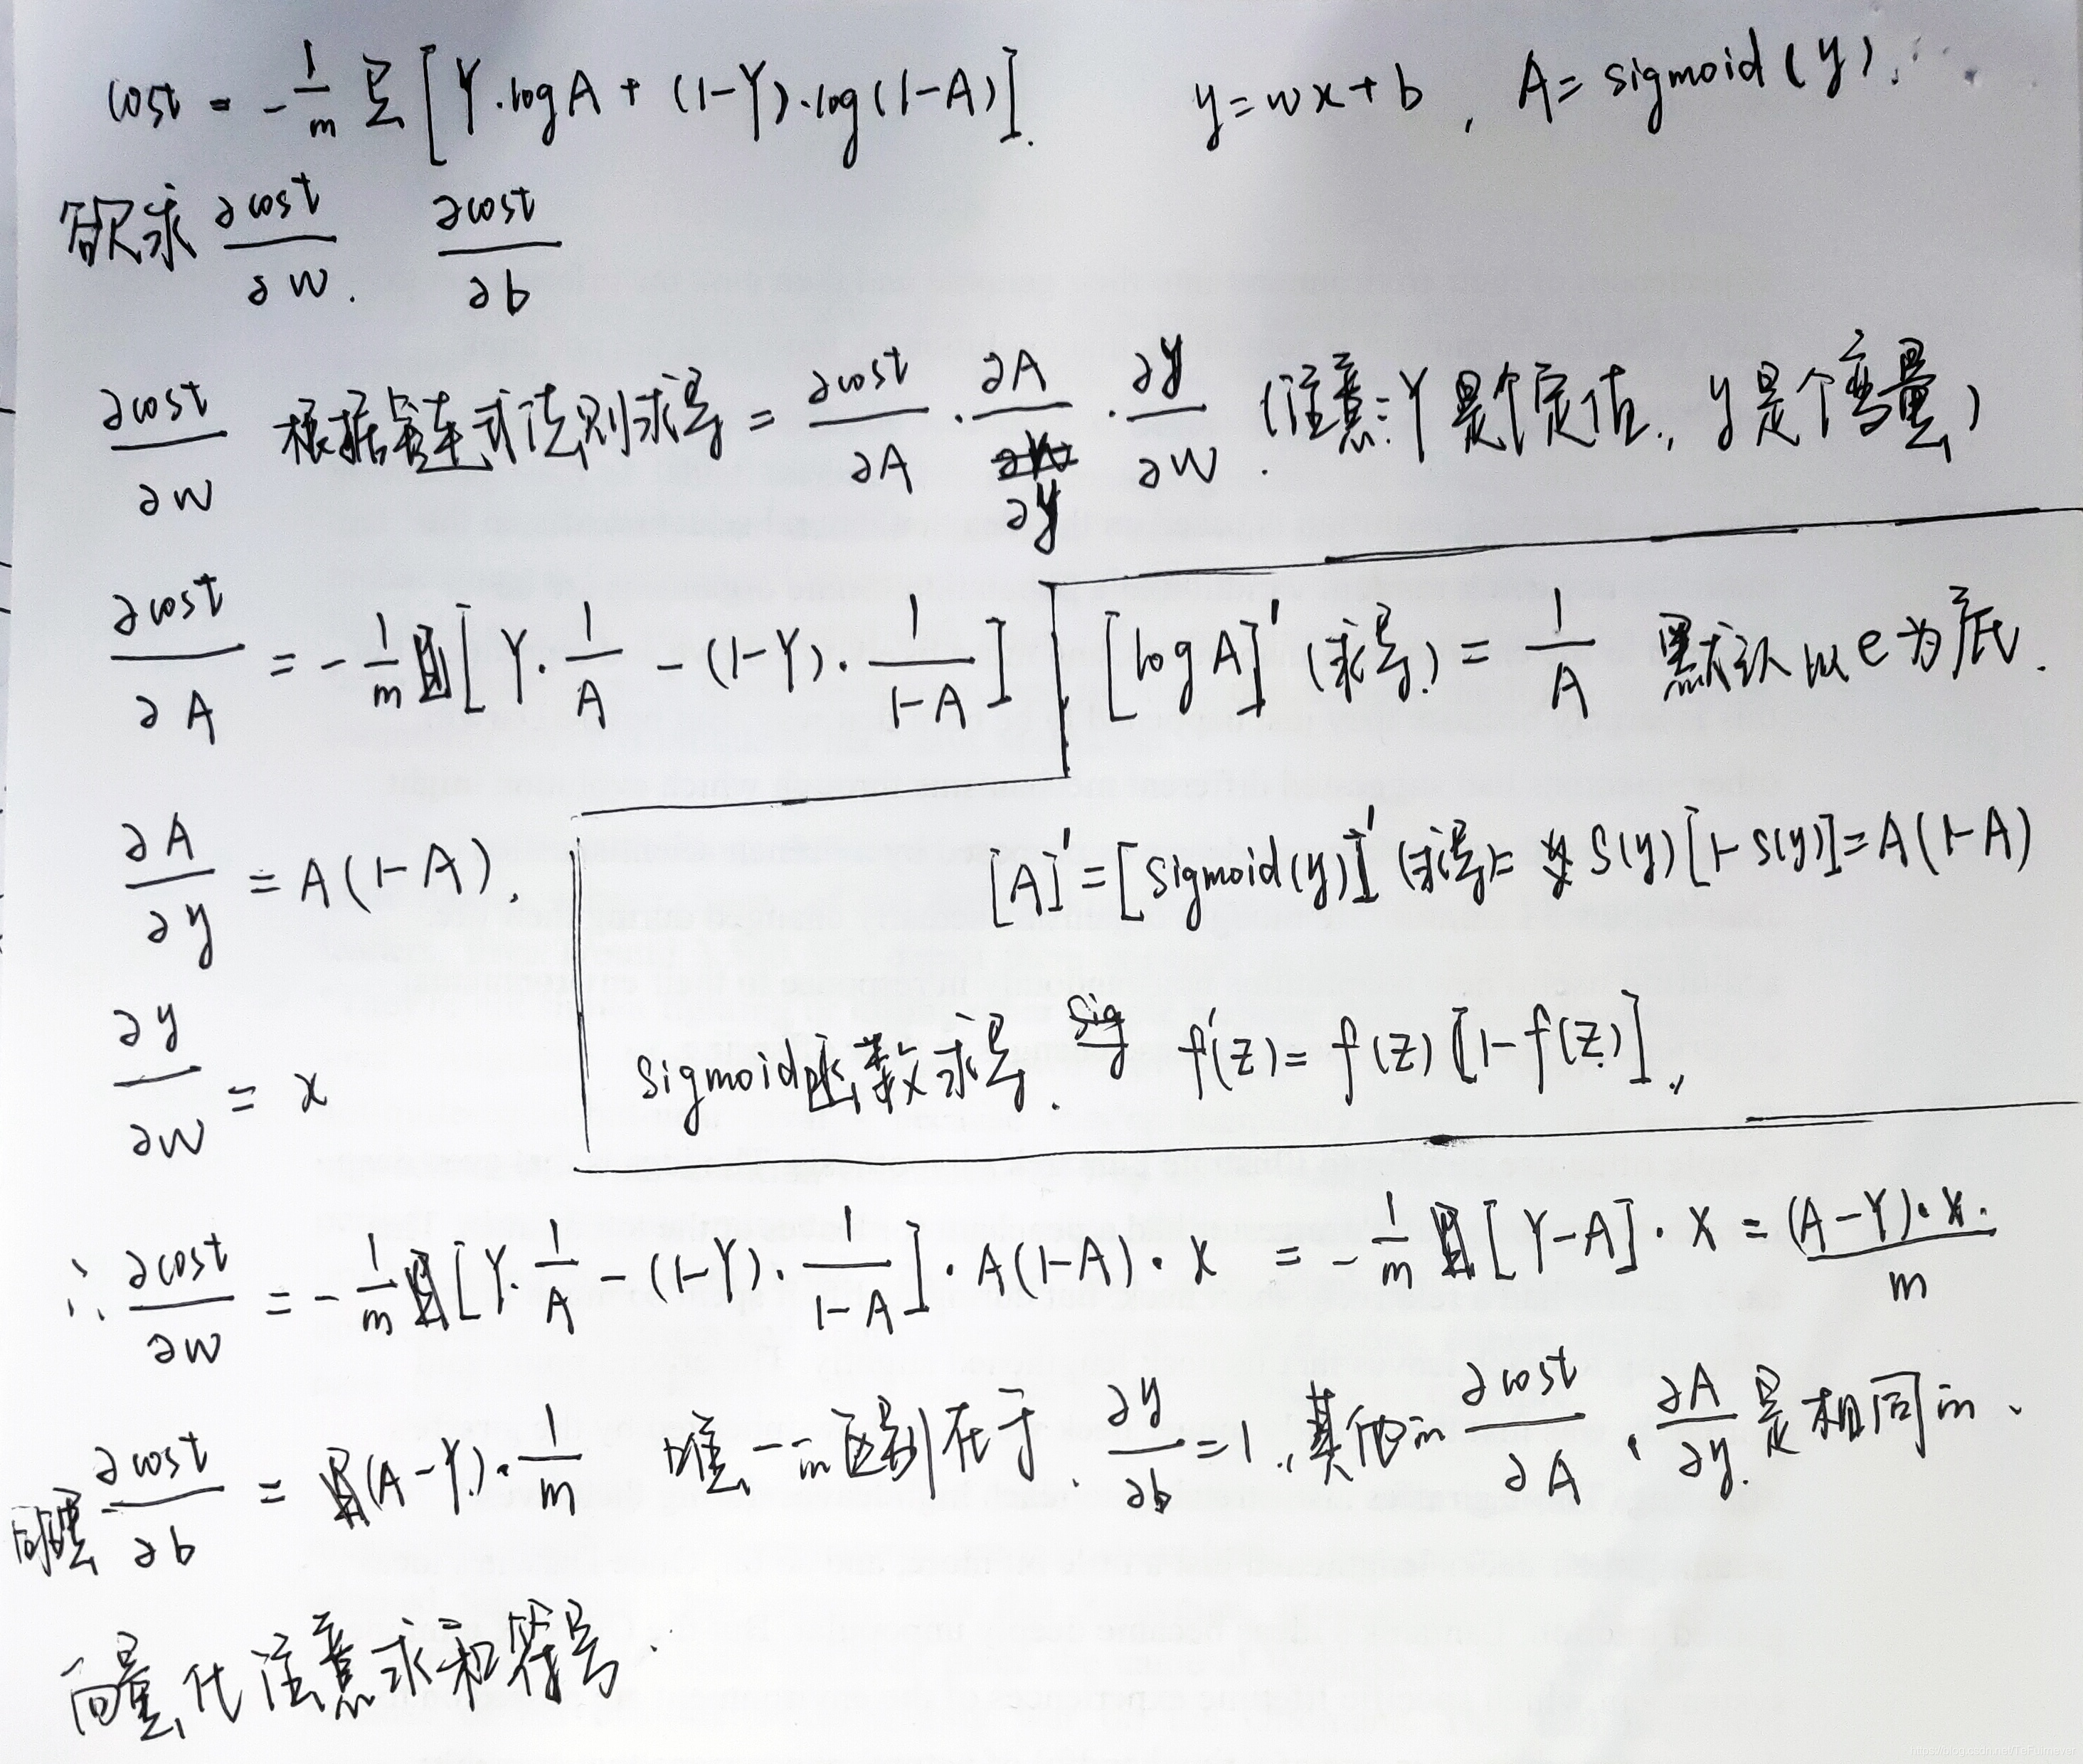 cost = -1/m Σ [Y·logA + (1-Y)·log(1-A)]. y=wx+b , A= sigmoid(y).
欲求 ∂cost/∂w. ∂cost/∂b
∂cost/∂w 根据链式法则求导 = ∂cost/∂A · ∂A/∂y · ∂y/∂w . (注意: Y是个定值, y是个变量)
∂cost/∂A = -1/m [Y·1/A - (1-Y)·1/(1-A)] [logA]' (求导) = 1/A 默认以e为底.
∂A/∂y = A(1-A). [A]' = [sigmoid(y)]' (求导)= S(y)[1-S(y)]=A(1-A)
∂y/∂w = x
sigmoid函数求导. f'(z)= f(z)[1-f(z)].
∴ ∂cost/∂w = -1/m [Y·1/A - (1-Y)·1/(1-A)]·A(1-A)·x = -1/m [Y-A]·x = (A-Y)·x./m
同理 ∂cost/∂b = (A-Y)·1/m 唯一的区别在于. ∂y/∂b=1.,其他的 ∂cost/∂A , ∂A/∂y. 是相同的.
向量化注意求和符号.